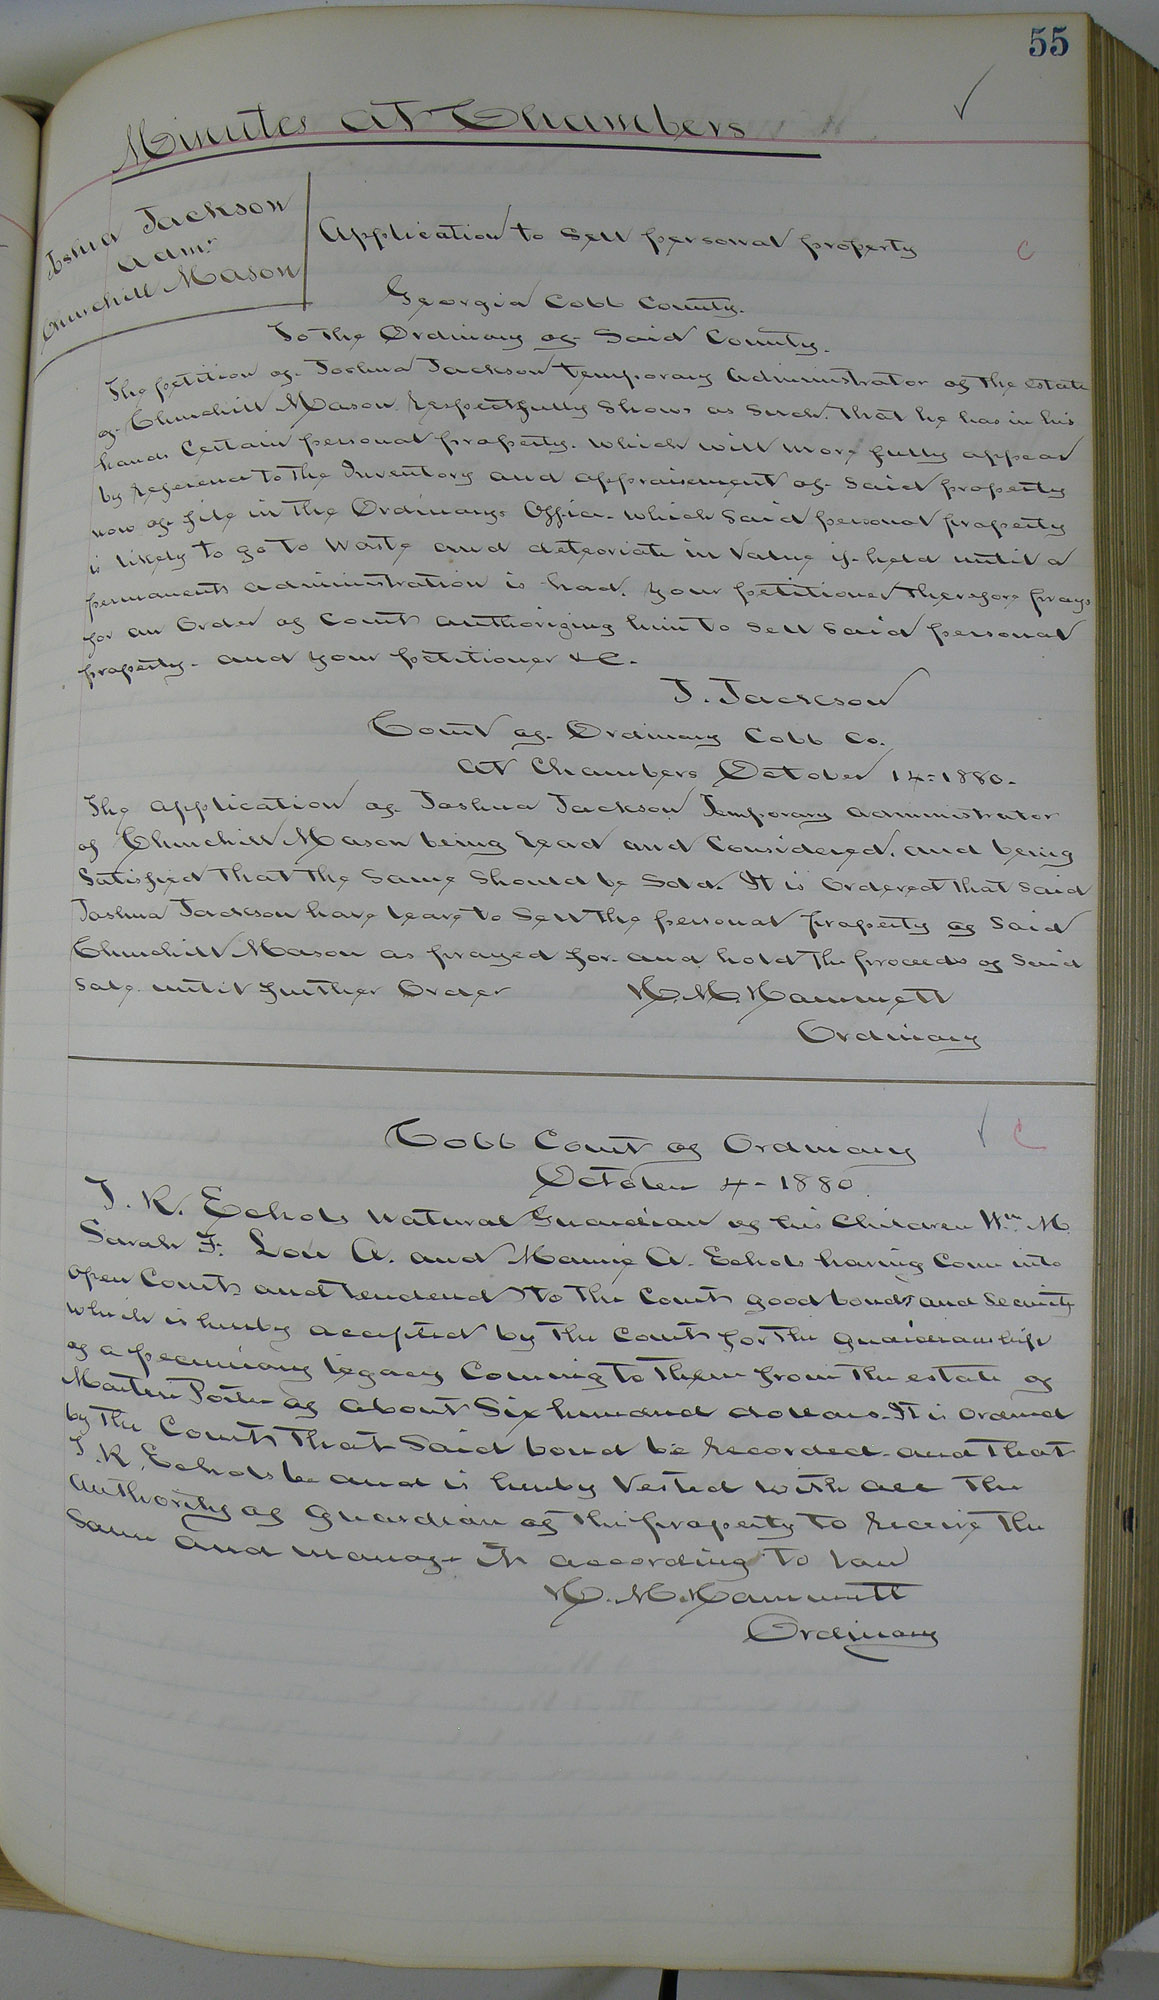 55
Minutes at Chambers
Joshua Jackson
admr
Churchill Mason
Application to sell personal property
C
Georgia Cobb County.
To the Ordinary of Said County.
The petition of Joshua Jackson temporary Administrator of the estate
of Churchill Mason respectfully shows as such. that he has in his
hands Certain personal property. which will more fully appear
by reference to the Inventory and appraisement of said property
now of file in the Ordinarys Office. which said personal property
is likely to go to waste and deteoriate in value if held until a
permanent administration is had. your petitioner therefore prays
for an Order of Court authorizing him to sell said personal
property. and your petitioner &C.
J. Jackson
Court of Ordinary Cobb Co.
At Chambers October 14-1880.
The application of Joshua Jackson Temporary administrator
of Churchill Mason being read and Considered. and being
Satisfied that the same should be sold. It is ordered that said
Joshua Jackson have leave to sell the personal property of said
Churchill Mason as prayed for and hold the proceeds of said
sale until further Order
H. M. Hammett
Ordinary
C
Cobb Court of Ordinary
October 4-1880
J. R. Echols Natural Guardian of his Children Wm M.
Sarah F. Lou A. and Mamie A. Echols having Come into
open Court and tendered to the Court good bond and security
which is hereby accepted by the Court for the guardianship
of a pecuniary legacy Coming to them from the estate of
Martin Porter of about Six hundred dollars. It is ordered
by the Court that said bond be recorded and that
J. R. Echols be and is hereby vested with all the
authority of guardian of the property to receive the
same and manage it according to law
H. M. Hammett
Ordinary